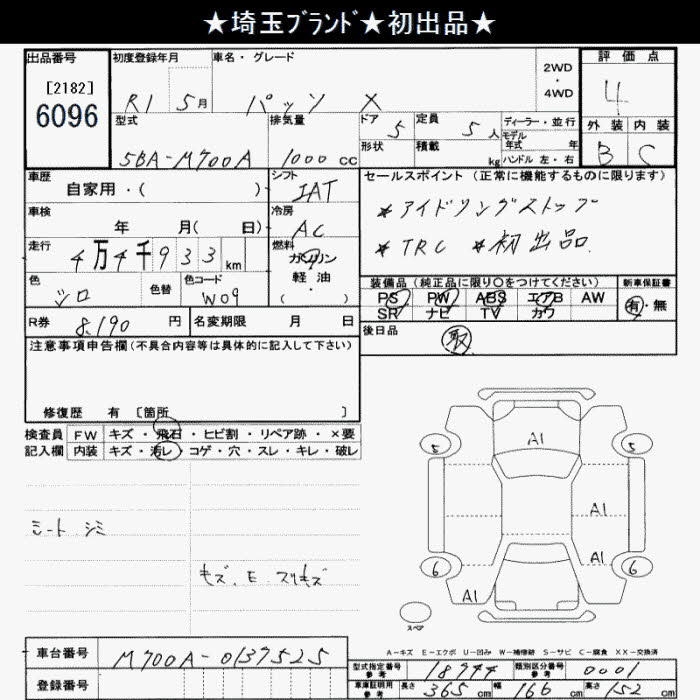 ★埼玉ﾌﾞﾗﾝﾄﾞ★初出品★
出品番号
[2182]
6096
初度登録年月
R1 5月
車名・グレード
パッソ X
2WD
・
4WD
評価点
4
外装 内装
B C
型式
5BA-M700A
排気量
1000 CC
ドア 5
形状
定員 5人
積載 kg
ディーラー・並行
モデル
年式 年
ハンドル 左・右
車歴
自家用・( )
シフト
IAT
車検
年 月( 日)
冷房
AC
走行
4万4千933km
燃料
ガソリン
軽油
( ・ )
色
シロ
色替
色コード
W09
R券 8,190 円
名変期限 月 日
セールスポイント(正常に機能するものに限ります)
*アイドリングストップ
*TRC *初出品
装備品(純正品に限り○をつけてください)
PS PW ABS エアB AW
SR ナビ TV カワ
新車保証書
有・無
後日品
取
注意事項申告欄(不具合内容等は具体的に記入して下さい)
修復歴 有 [箇所 ]
検査員
記入欄
FW キズ・飛石・ヒビ割・リペア跡・×要
内装 キズ・汚レ・コゲ・穴・スレ・キレ・破レ
シート シミ
キズ、E、スリキズ
A1
5 5
A1
A1
6 6
A1
スペア
A-キズ E-エクボ U-凹み W-補修跡 S-サビ C-腐食 XX-交換済
車台番号 M700A-0137525
登録番号
型式指定番号
参考
18944
類別区分番号
参考
0001
車庫証明用
参考
長さ 365 cm 幅 166 cm 高さ 152 cm